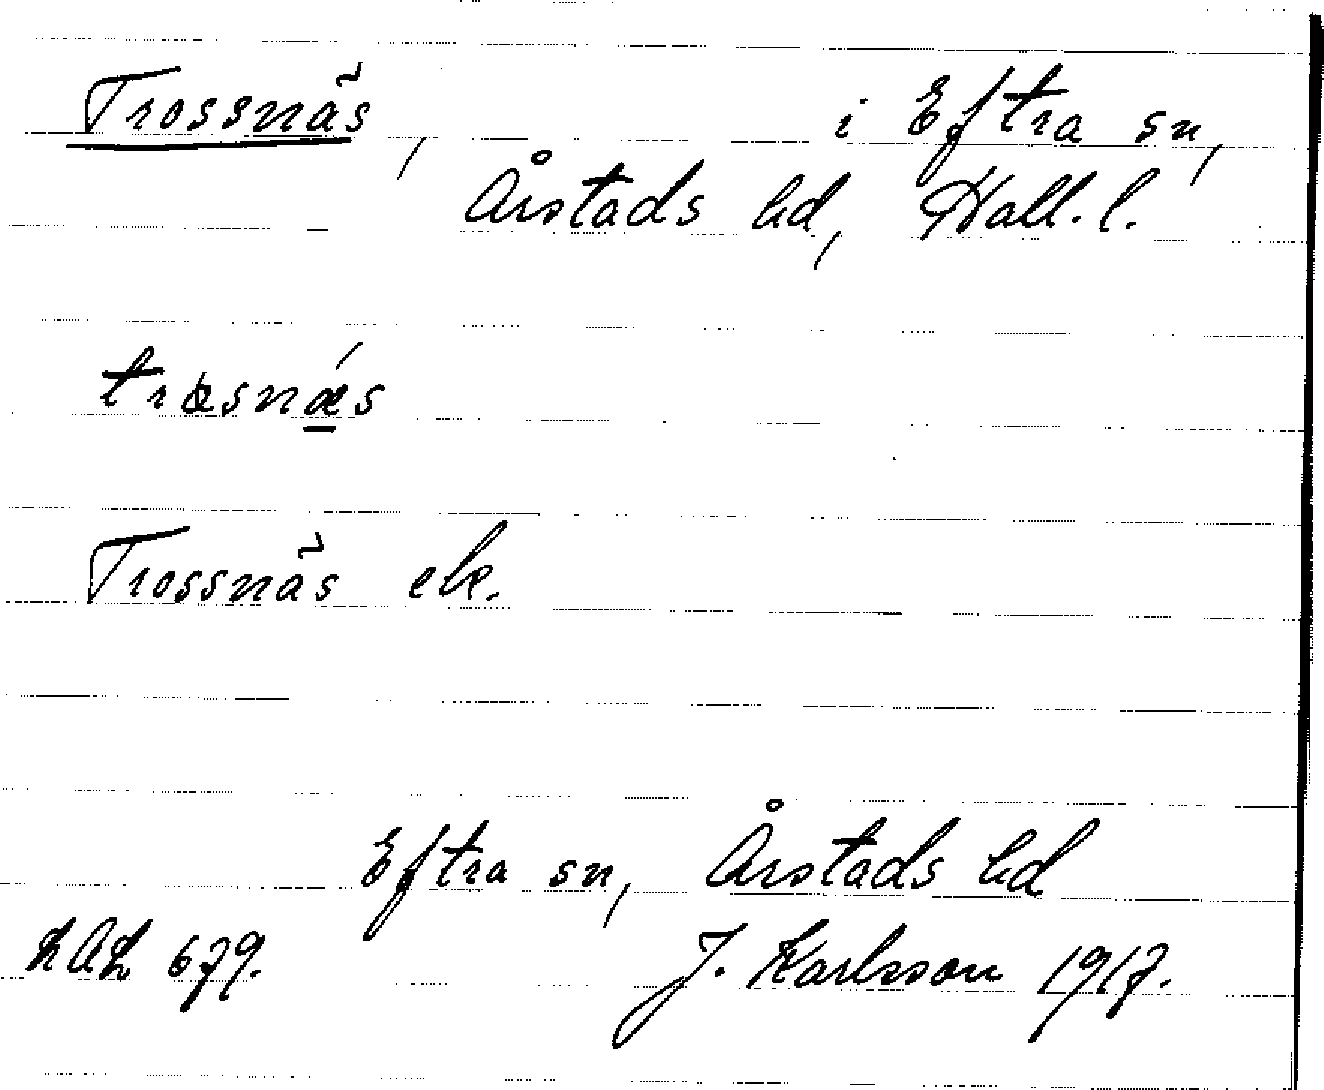 Trossnäs, i Eftra sn,
Årstads hd, Hall. l.
Trossnäs ek.
Eftra sn, Årstads hd
LAL 679. J. Karlsson 1917.